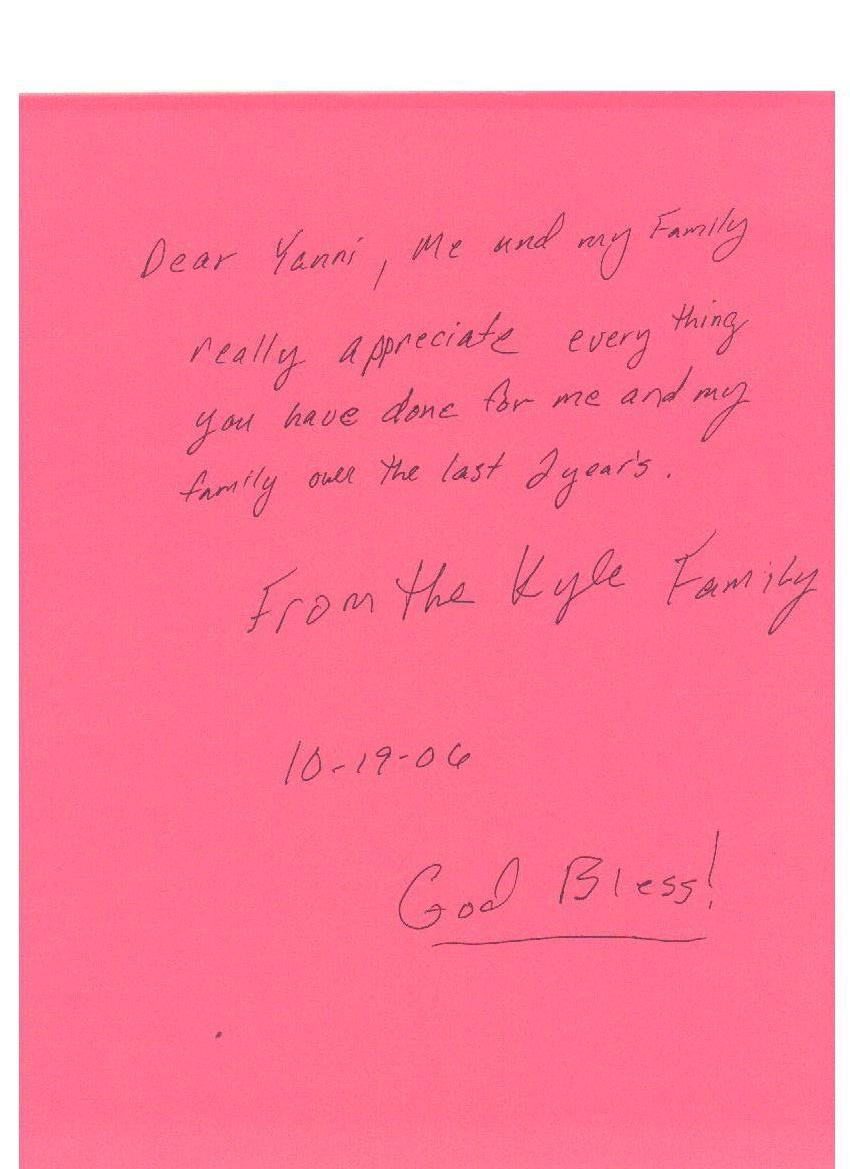 Dear Yanni, Me and my Family
really appreciate every thing
you have done for me and my
family over the last 2 year's.
From the Kyle Family
10-19-06
God Bless!